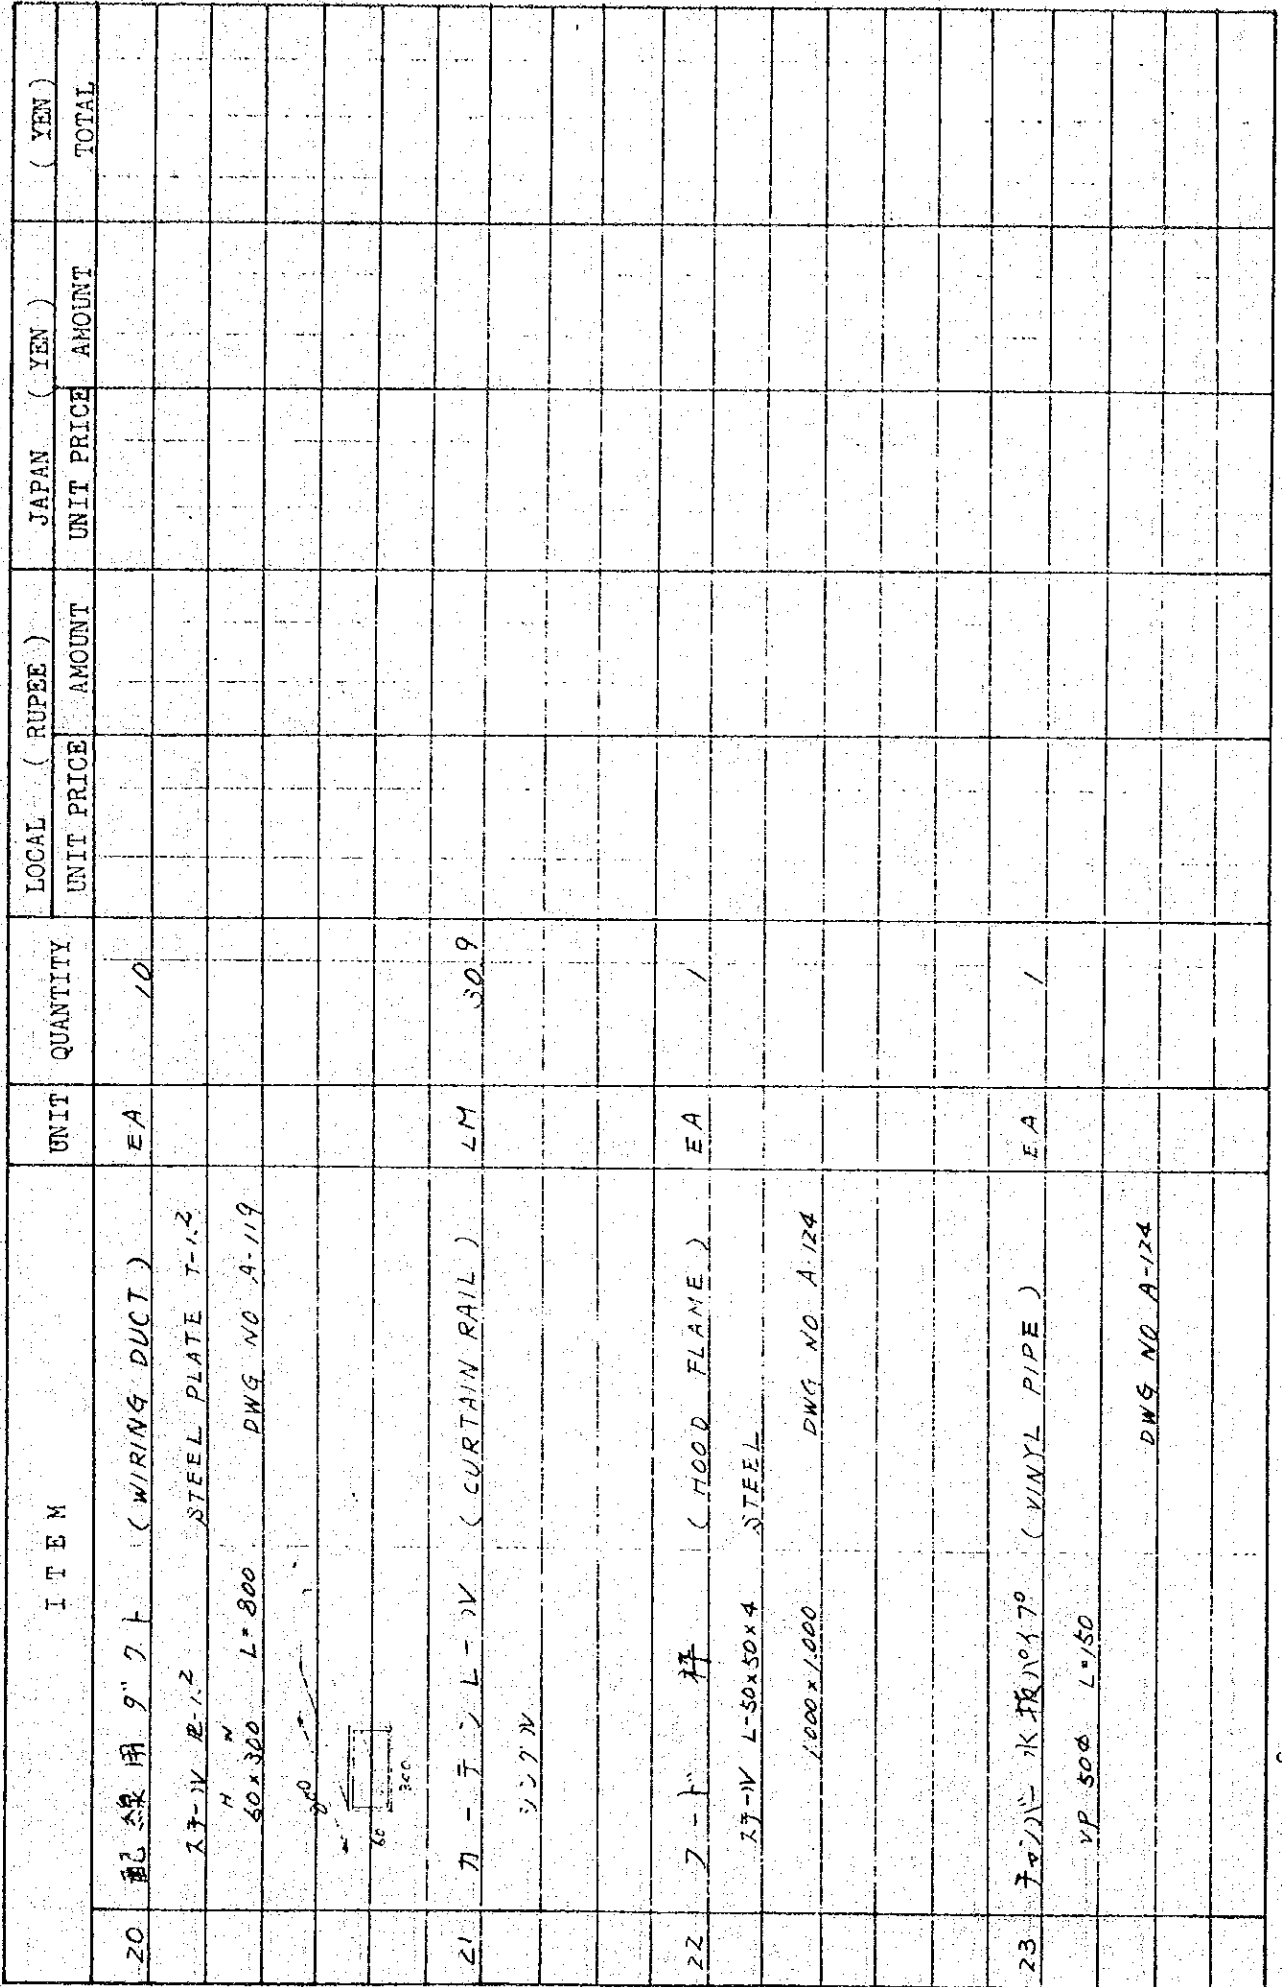 ITEM UNIT QUANTITY LOCAL ( RUPEE ) JAPAN ( YEN ) ( YEN )
UNIT PRICE AMOUNT UNIT PRICE AMOUNT TOTAL
20 配線用ダクト ( WIRING DUCT ) EA 10
スチール t-1.2 STEEL PLATE T-1.2
H W
60×300 L=800 DWG NO A-119
800
60
300
21 カーテンレール ( CURTAIN RAIL ) LM 30.9
シングル
22 フード 枠 ( HOOD FLAME ) EA 1
スチール L-50×50×4 STEEL
1.000×1.000 DWG NO A-124
23 チャンバー水抜パイプ ( VINYL PIPE ) EA 1
VP 50Φ L=150
DWG NO A-124